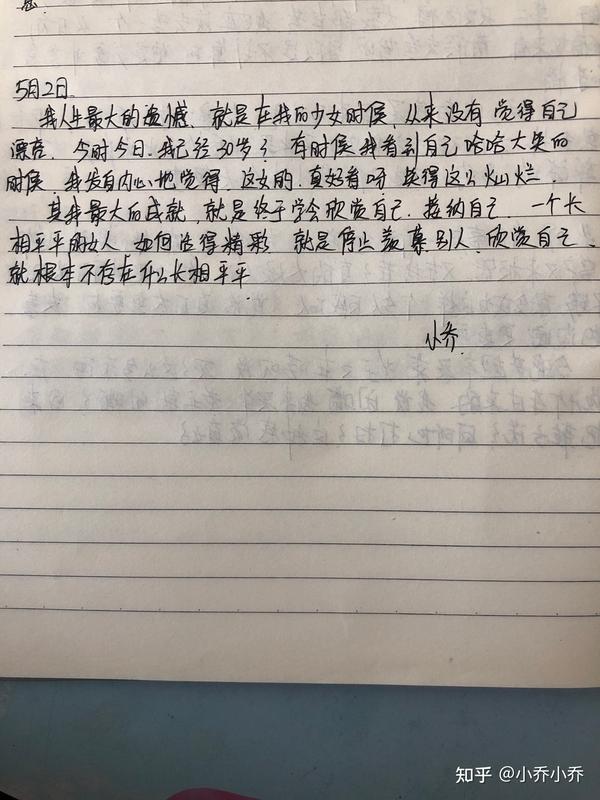 5月2日.
我人生最大的遗憾、就是在我的少女时候、从来没有觉得自己
漂亮、今时今日.我已经30岁了 有时候我看到自己哈哈大笑的
时候、我发自内心地觉得、这女的、真好看呀 笑得这么灿烂、
其我最大的成就、就是终于学会欣赏自己.接纳自己、一个长
相平平的女人 如何活得精彩 就是停止羡慕别人、欣赏自己、
就根本不存在什么长相平平.
小乔.
知乎 @小乔小乔